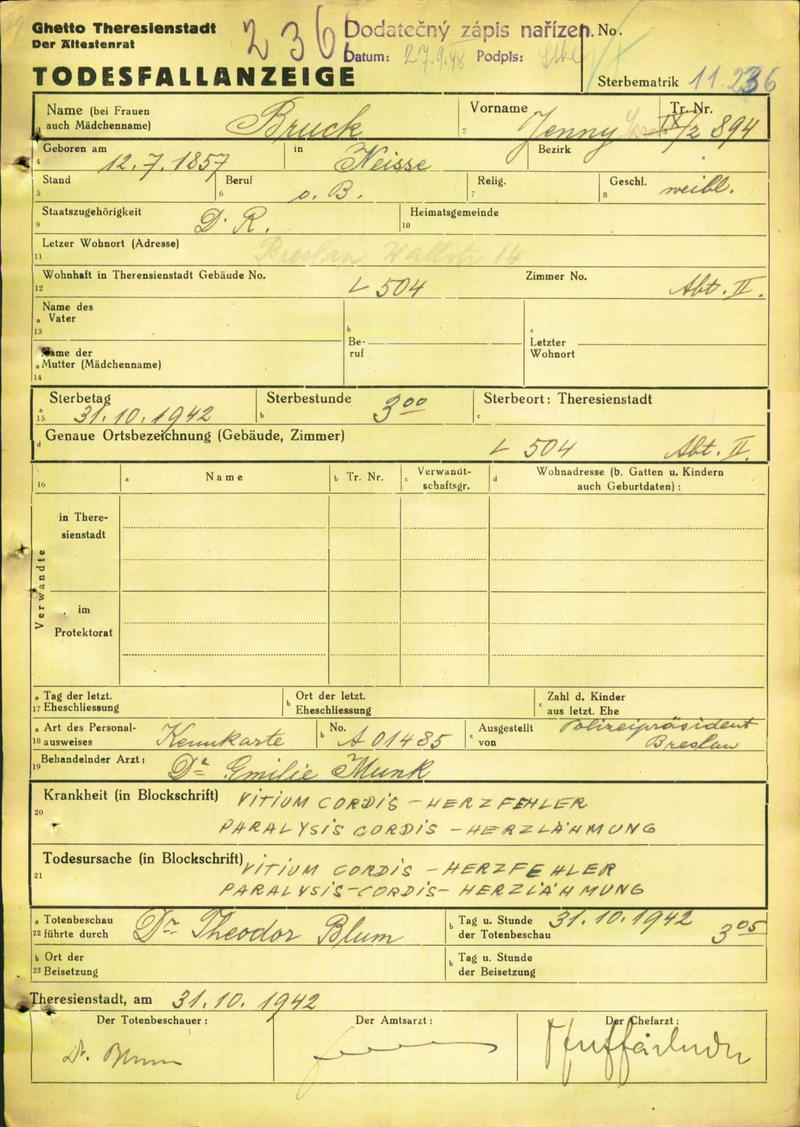 Ghetto Theresienstadt
Der Ältestenrat
TODESFALLANZEIGE
236
Dodatečný zápis nařízen.
Datum: 27.9.48 Podpis:
No.
Sterbematrik 11236
Name (bei Frauen auch Mädchenname) Bruck
2 Vorname Jenny
Tr. Nr. IX/2 894
4 Geboren am 12.7.1857 in Neisse Bezirk
5 Stand
6 Beruf o. B.
7 Relig.
8 Geschl. weibl.
9 Staatszugehörigkeit D. R.
10 Heimatsgemeinde
11 Letzer Wohnort (Adresse) Breslau Wallstr 14
12 Wohnhaft in Therensienstadt Gebäude No. L 504 Zimmer No. Abt. II.
13 a Name des Vater
14 a Name der Mutter (Mädchenname)
b Beruf
c Letzter Wohnort
15 a Sterbetag 31.10.1942
b Sterbestunde 3 00
c Sterbeort: Theresienstadt
d Genaue Ortsbezeichnung (Gebäude, Zimmer) L 504 Abt. II.
16 a Name
b Tr. Nr.
c Verwandtschaftsgr.
d Wohnadresse (b. Gatten u. Kindern auch Geburtdaten):
Verwandte
in Theresienstadt
im Protektorat
17 a Tag der letzt. Eheschliessung
b Ort der letzt. Eheschliessung
c Zahl d. Kinder aus letzt. Ehe
18 a Art des Personalausweises Kennkarte
b No. A 01485
c Ausgestellt von Polizeipräsident Breslau
19 Behandelnder Arzt: Dr. Emilie Munk
20 Krankheit (in Blockschrift) VITIUM CORDIS - HERZFEHLER
PARALYSIS CORDIS - HERZLÄHMUNG
21 Todesursache (in Blockschrift) VITIUM CORDIS - HERZFEHLER
PARALYSIS-CORDIS- HERZLÄHMUNG
22 a Totenbeschau führte durch Dr. Theodor Blum
b Tag u. Stunde der Totenbeschau 31.10.1942 3 05
23 b Ort der Beisetzung
b Tag u. Stunde der Beisetzung
Theresienstadt, am 31.10.1942
Der Totenbeschauer:
Der Amtsarzt:
Der Chefarzt:
Dr. Blum